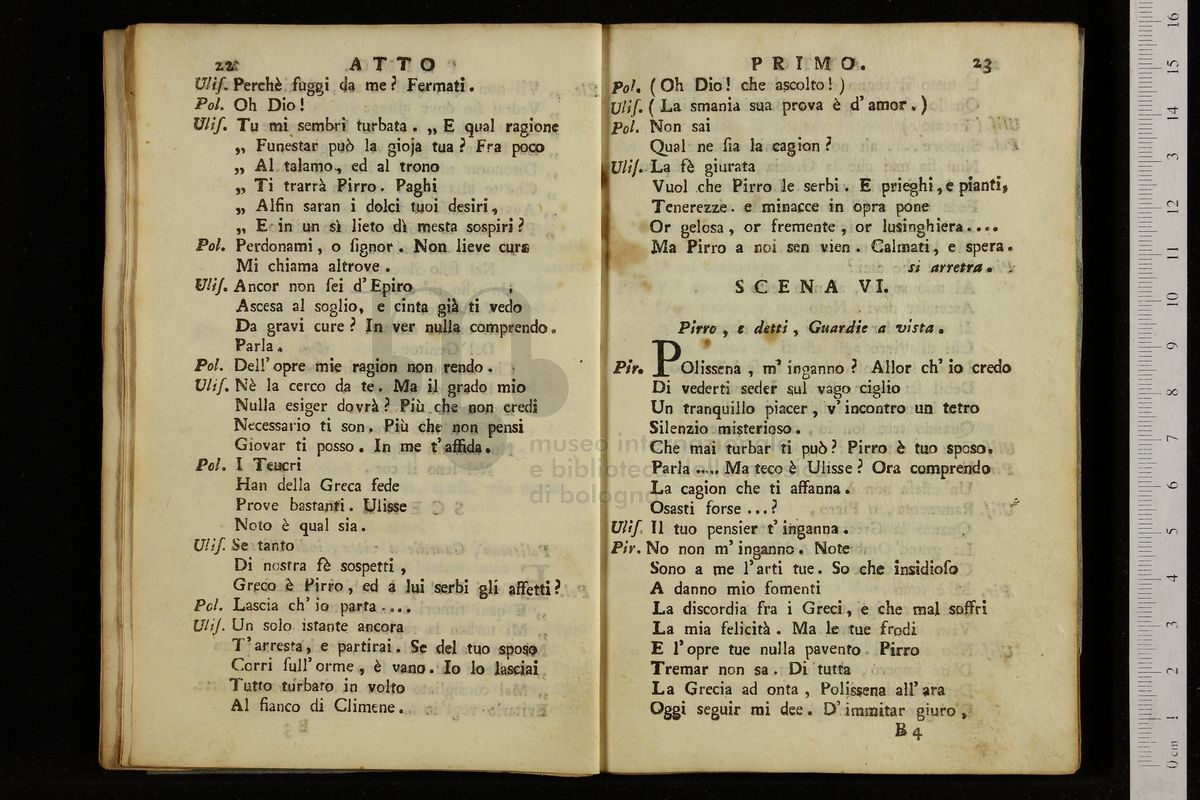 22
ATTO
Ulis. Perchè fuggi da me? Fermati.
Pol. Oh Dio!
Ulis. Tu mi sembri turbata. „ E qual ragione
„ Funestar può la gioja tua? Fra poco
„ Al talamo, ed al trono
„ Ti trarrà Pirro. Paghi
„ Alfin saran i dolci tuoi desiri,
„ E in un sì lieto dì mesta sospiri?
Pol. Perdonami, o ſignor. Non lieve cura
Mi chiama altrove.
Ulis. Ancor non ſei d'Epiro
Ascesa al soglio, e cinta già ti vedo
Da gravi cure? In ver nulla comprendo.
Parla.
Pol. Dell'opre mie ragion non rendo.
Ulis. Nè la cerco da te. Ma il grado mio
Nulla esiger dovrà? Più che non credi
Necessario ti son. Più che non pensi
Giovar ti posso. In me t'affida.
Pol. I Teucri
Han della Greca fede
Prove bastanti. Ulisse
Noto è qual sia.
Ulis. Se tanto
Di nostra fè sospetti,
Greco è Pirro, ed a lui serbi gli affetti?
Pol. Lascia ch'io parta....
Ulis. Un solo istante ancora
T'arresta, e partirai. Se del tuo sposo
Corri ſull'orme, è vano. Io lo lasciai
Tutto turbato in volto
Al fianco di Climene.
PRIMO.
23
Pol. (Oh Dio! che ascolto!)
Ulis. (La smania sua prova è d'amor.)
Pol. Non sai
Qual ne ſia la cagion?
Ulis. La fè giurata
Vuol che Pirro le serbi. E prieghi, e pianti,
Tenerezze. e minacce in opra pone
Or gelosa, or fremente, or lusinghiera....
Ma Pirro a noi sen vien. Calmati, e spera.
si arretra.
SCENA VI.
Pirro, e detti, Guardie a vista.
Pir. POlissena, m'inganno? Allor ch'io credo
Di vederti seder sul vago ciglio
Un tranquillo piacer, v'incontro un tetro
Silenzio misterioso.
Che mai turbar ti può? Pirro è tuo sposo.
Parla ..... Ma teco è Ulisse? Ora comprendo
La cagion che ti affanna.
Osasti forse ...?
Ulis. Il tuo pensier t'inganna.
Pir. No non m'inganno. Note
Sono a me l'arti tue. So che insidioſo
A danno mio fomenti
La discordia fra i Greci, e che mal soffri
La mia felicità. Ma le tue frodi
E l'opre tue nulla pavento. Pirro
Tremar non sa. Di tutta
La Grecia ad onta, Polissena all'ara
Oggi seguir mi dee. D'immitar giuro,
B 4
museo internazionale
e biblioteca della musica
di bologna
0 cm 1 2 3 4 5 6 7 8 9 10 11 12 13 14 15 16